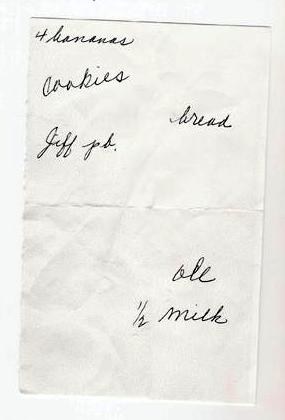 4 bananas
cookies
bread
Jiff pb.
ole
½ milk